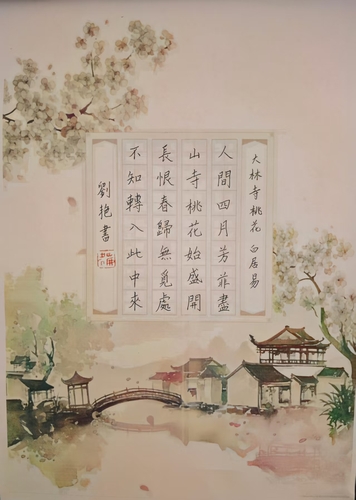 大林寺桃花 白居易
人間四月芳菲盡
山寺桃花始盛開
長恨春歸無覓處
不知轉入此中來
劉艳書